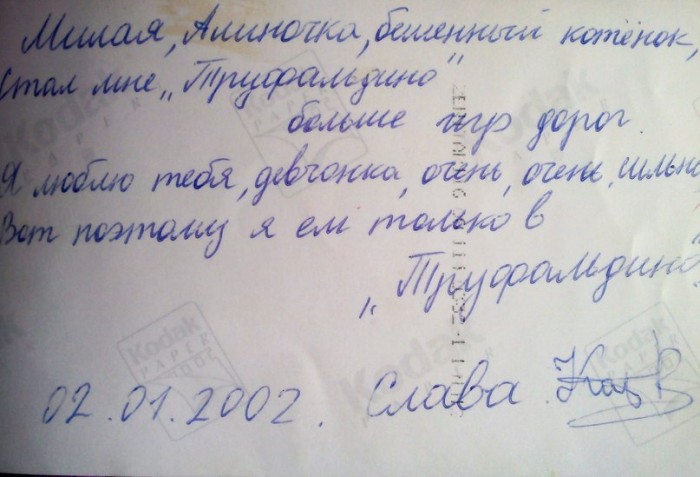 Милая, Алиночка, бешенный котёнок,
Стал мне „Труфальдино"
больше игр дорог.
Я люблю тебя, девчонка, очень, очень, сильно
Вот поэтому я ем только в
„Труфальдино"
02.01.2002. Слава
Kodak
PAPER
Kodak
PAPER
Kodak
PAPER
Kodak